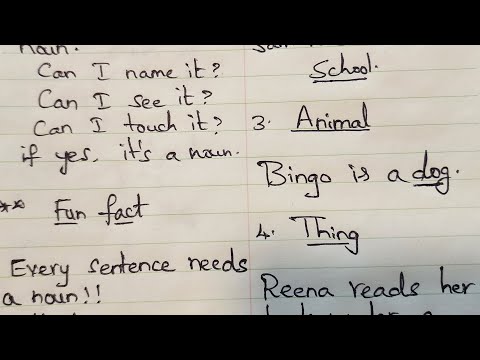 noun.
Can I name it?
Can I see it?
Can I touch it?
if yes, it's a noun.
** Fun fact
Every sentence needs
a noun!!
School.
3. Animal
Bingo is a dog.
4. Thing
Reena reads her